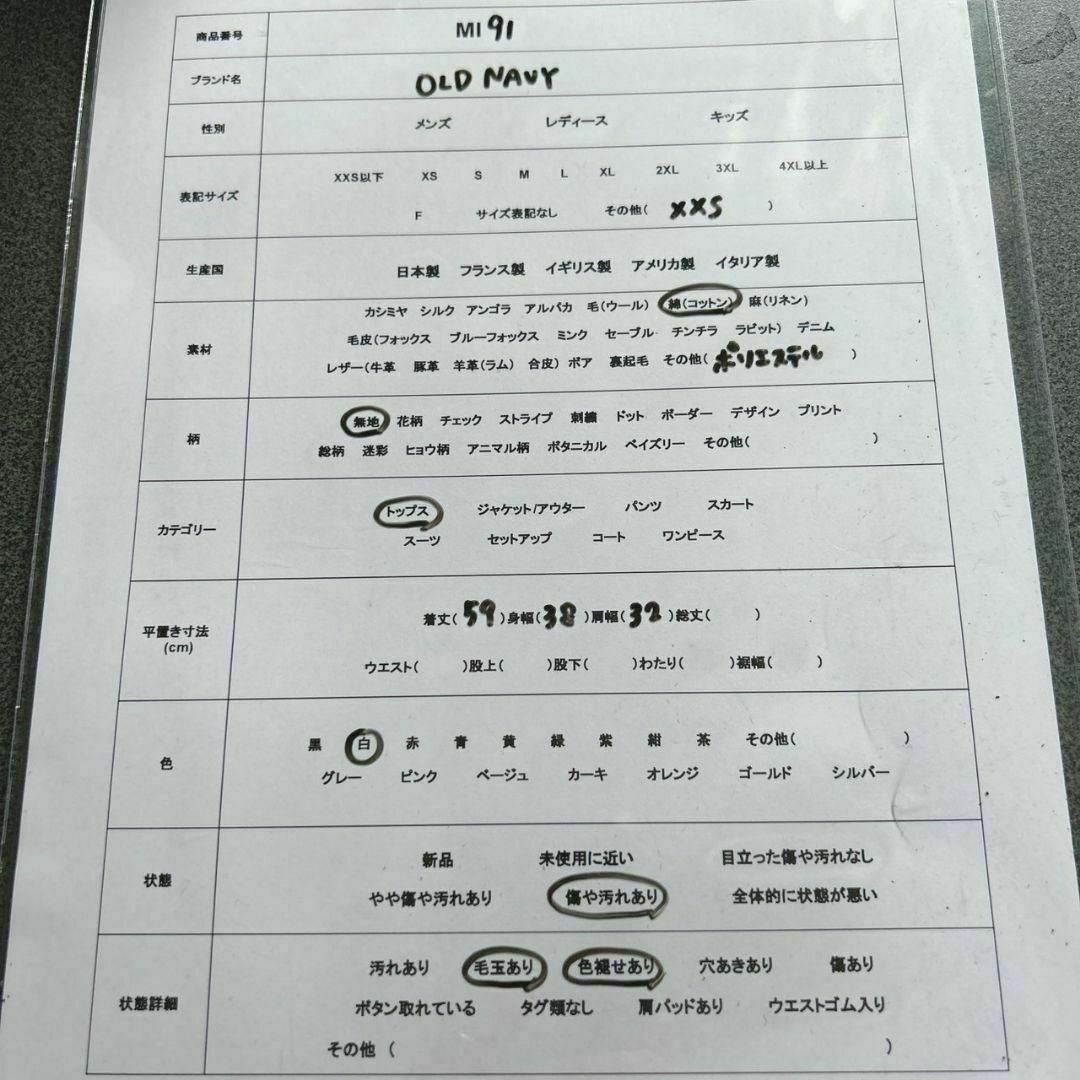 商品番号 MI 91
ブランド名 OLD NAVY
性別 メンズ レディース キッズ
XXS以下 XS S M L XL 2XL 3XL 4XL以上
表記サイズ
F サイズ表記なし その他( XXS )
生産国 日本製 フランス製 イギリス製 アメリカ製 イタリア製
カシミヤ シルク アンゴラ アルパカ 毛(ウール) 綿(コットン) 麻(リネン)
毛皮(フォックス ブルーフォックス ミンク セーブル チンチラ ラビット) デニム
素材
レザー(牛革 豚革 羊革(ラム) 合皮) ボア 裏起毛 その他( ポリエステル )
無地 花柄 チェック ストライプ 刺繍 ドット ボーダー デザイン プリント
柄
総柄 迷彩 ヒョウ柄 アニマル柄 ボタニカル ペイズリー その他( )
トップス ジャケット/アウター パンツ スカート
カテゴリー
スーツ セットアップ コート ワンピース
着丈( 59 )身幅( 38 )肩幅( 32 )総丈( )
平置き寸法
(cm)
ウエスト( )股上( )股下( )わたり( )裾幅( )
黒 白 赤 青 黄 緑 紫 紺 茶 その他( )
色
グレー ピンク ベージュ カーキ オレンジ ゴールド シルバー
新品 未使用に近い 目立った傷や汚れなし
状態
やや傷や汚れあり 傷や汚れあり 全体的に状態が悪い
汚れあり 毛玉あり 色褪せあり 穴あきあり 傷あり
状態詳細
ボタン取れている タグ類なし 肩パッドあり ウエストゴム入り
その他 ( )